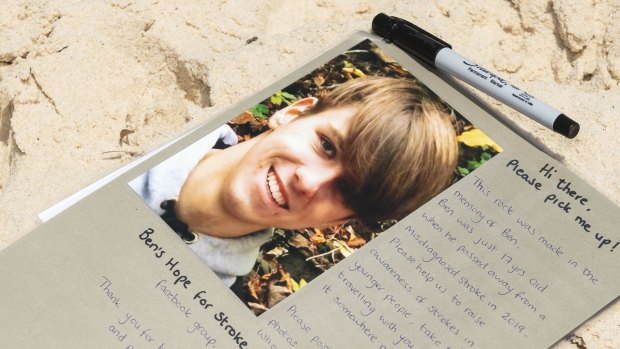 Sharpie
PERMANENT MARKER
Hi there,
Please pick me up!
This rock was made in the
memory of Ben.
Ben was just 17 yrs old
when he passed away from a
misdiagnosed stroke in 2019.
Please help us to raise
awareness of strokes in
younger people, take
travelling with you
it somewhere
Please
photos
Ben's Hope for Stroke
Facebook group.
Thank you for
and